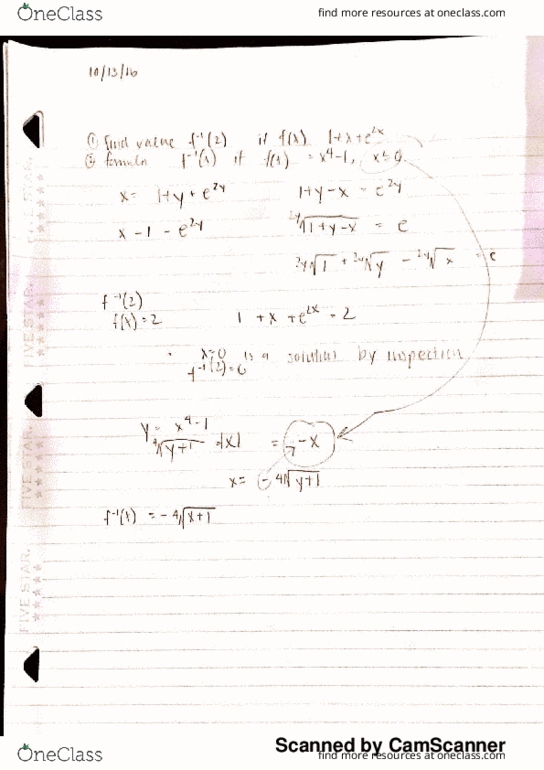 OneClass
find more resources at oneclass.com
10/13/16
① find value f⁻¹(2) if f(x) 1+x+e^2x
② formula f⁻¹(x) if f(x) = x⁴-1, x≤0
x = 1+y+e^2y
1+y-x = e^2y
x-1-e^2y
2y√1+y-x = e
2y√1 + 2y√y - 2y√x = e
f⁻¹(2)
f(x)=2
1+x+e^2x=2
x=0 is a solution by inspection
f⁻¹(2)=0
y = x⁴-1
4√y+1 = |x| = -x
x = -4√y+1
f⁻¹(x) = -4√x+1
FIVE STAR.
FIVE STAR.
FIVE STAR.
Scanned by CamScanner
OneClass
find more resources at oneclass.com